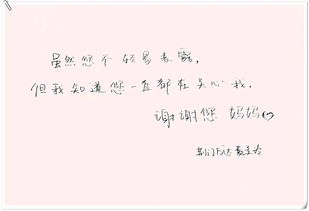 虽然您不轻易表露,
但我知道您一直都在关心我,
谢谢您 妈妈